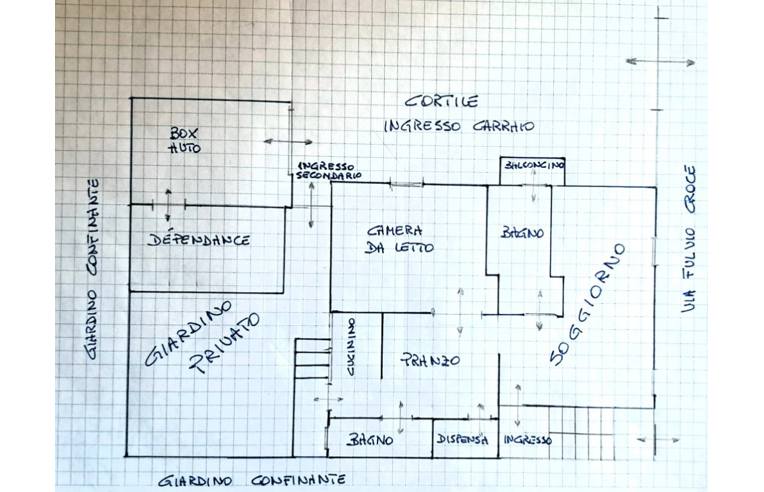 CORTILE
INGRESSO CARRAIO
BOX
AUTO
INGRESSO
SECONDARIO
BALCONCINO
DÉPENDANCE
CAMERA
DA LETTO
BAGNO
SOGGIORNO
VIA FULVIO CROCE
GIARDINO CONFINANTE
GIARDINO
PRIVATO
CUCININO
PRANZO
BAGNO
DISPENSA
INGRESSO
GIARDINO CONFINANTE